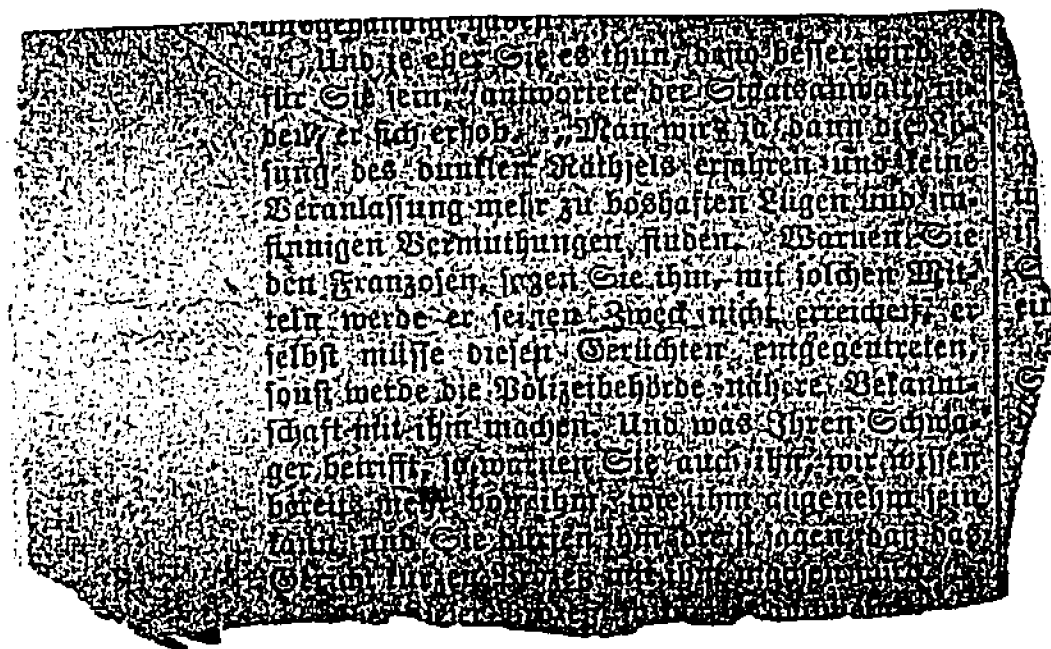 Und je eher Sie es thun, desto besser wird es
für Sie sein, antwortete der Staatsanwalt, in-
dem er sich erhob. „Man wird ja dann die Lö-
sung des dunklen Räthsels erfahren und keine
Veranlassung mehr zu boshaften Lügen und un-
sinnigen Vermuthungen finden. Warnen Sie
den Franzosen, sagen Sie ihm, mit solchen Mit-
teln werde er seinen Zweck nicht erreichen, er
selbst müsse diesen Gerüchten entgegentreten,
sonst werde die Polizeibehörde nähere Bekannt-
schaft mit ihm machen. Und was Ihren Schwa-
ger betrifft, so warnen Sie auch ihn, wir wissen
bereits mehr von ihm, wie ihm angenehm sein
kann, und Sie dürfen ihm dreist sagen, daß das
Gericht kurzen Prozeß mit ihm machen